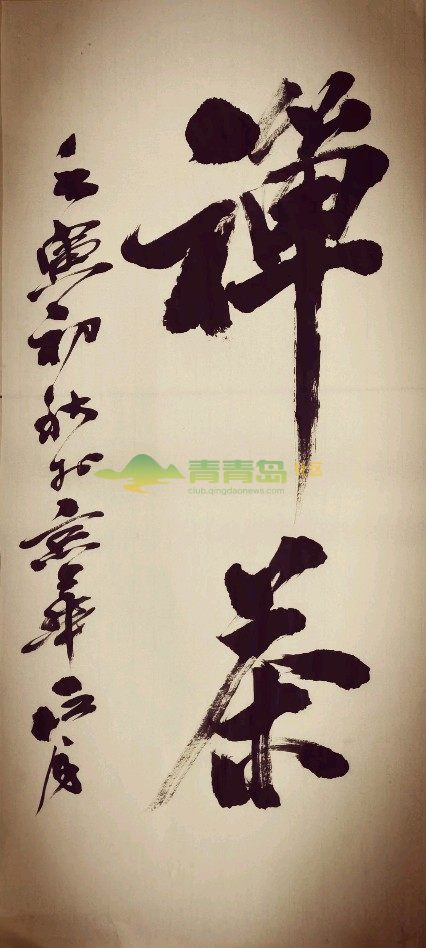 禅茶
壬寅初秋於京华
青青岛社区
club.qingdaonews.com